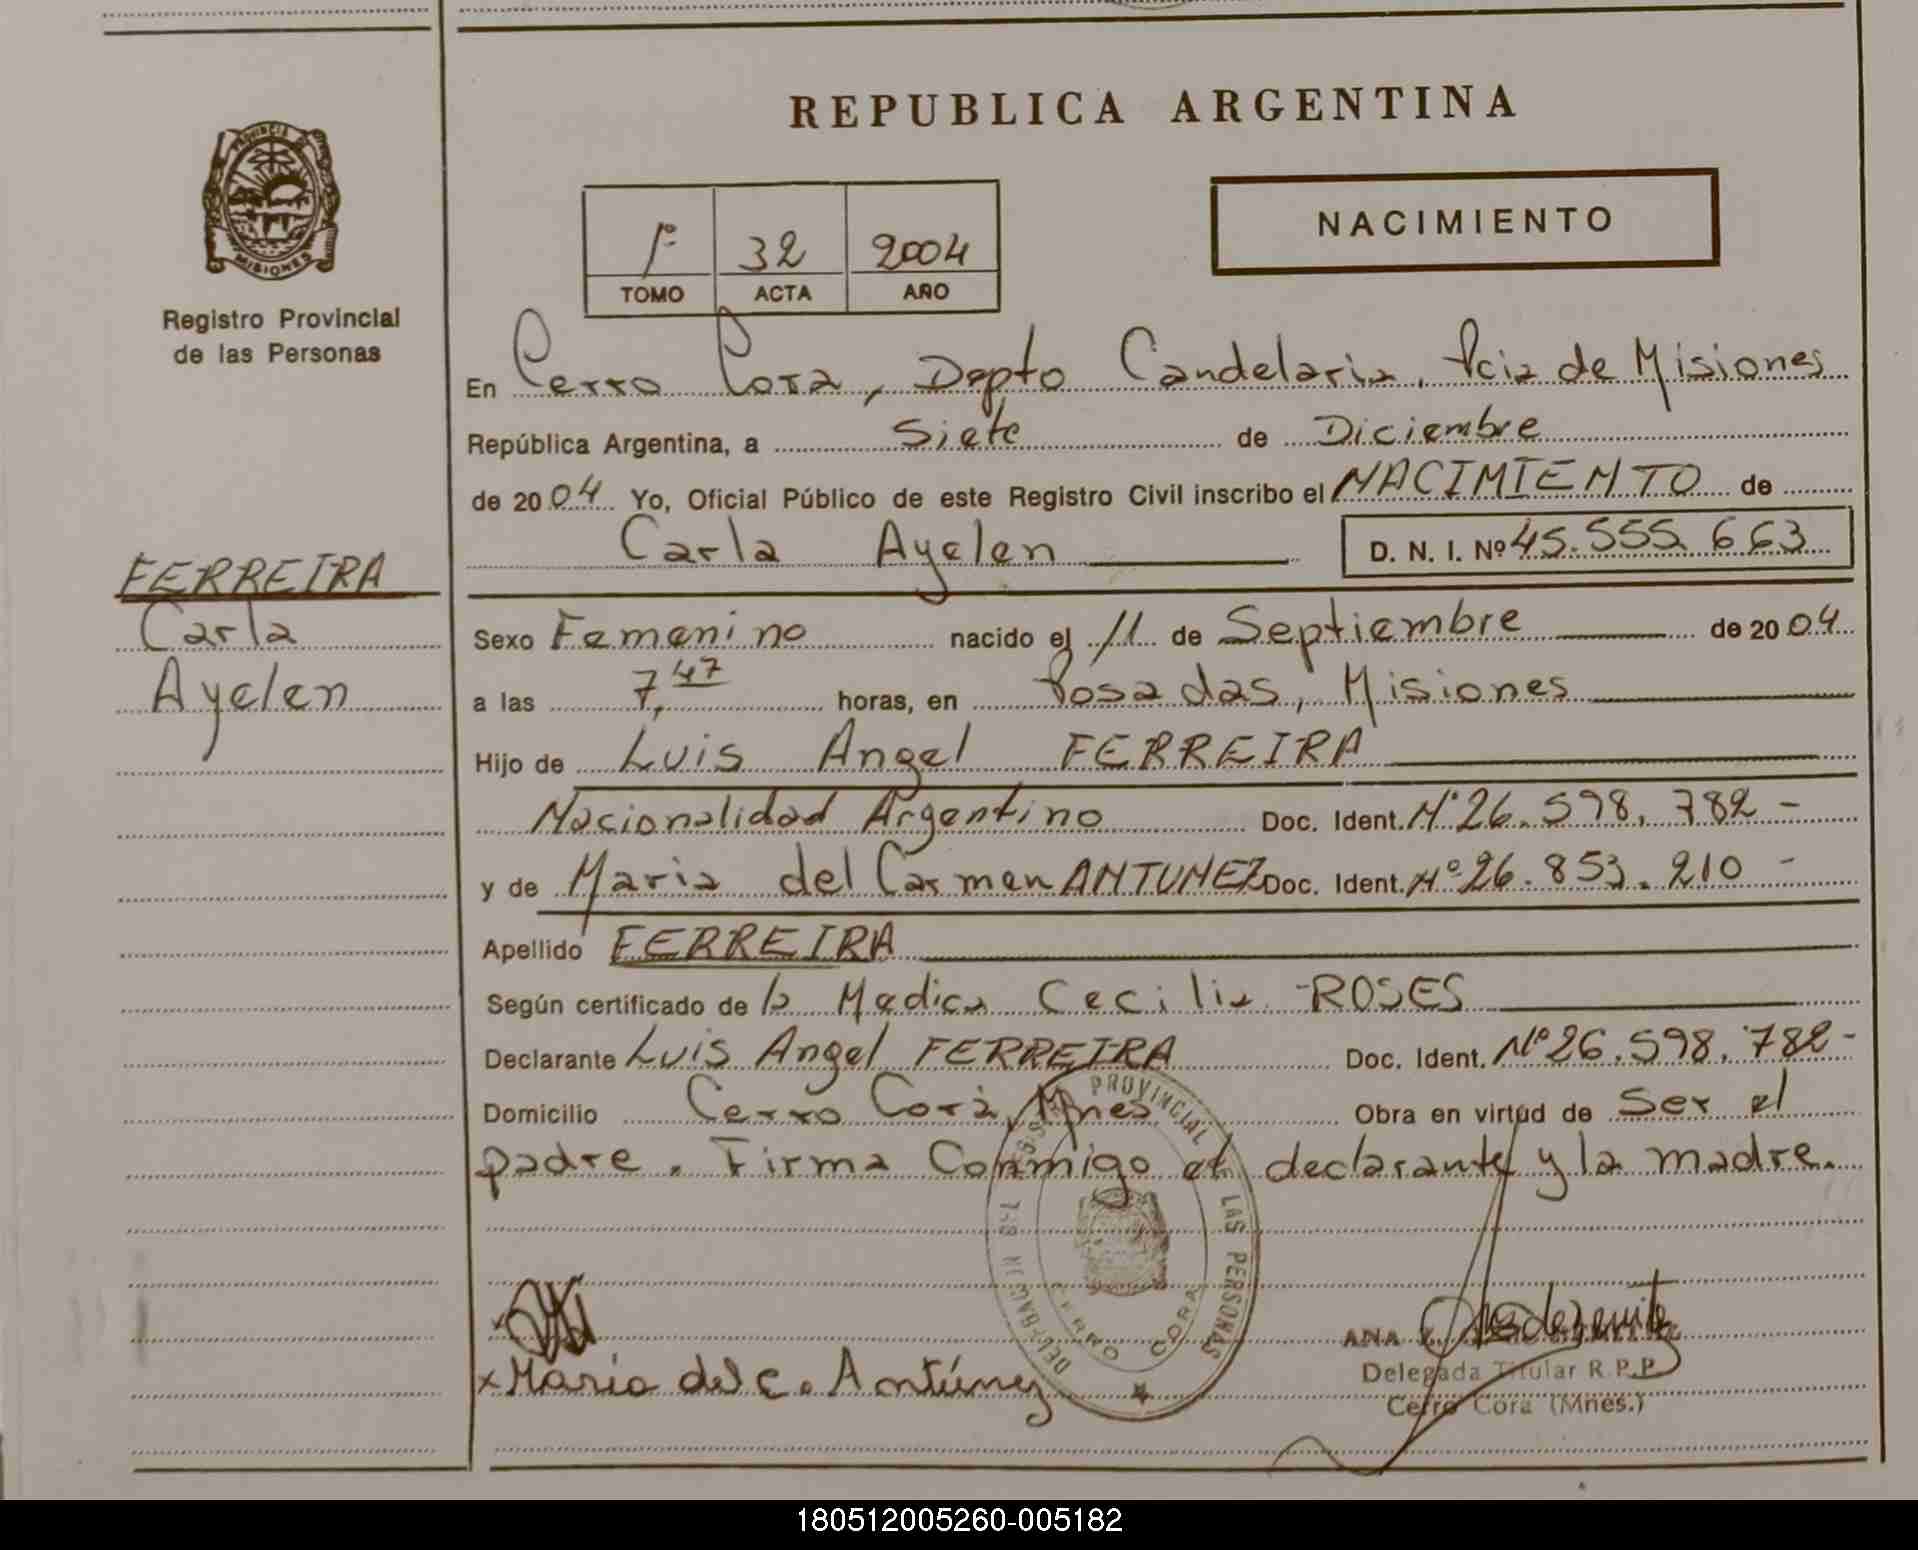 REPUBLICA ARGENTINA
PROVINCIA DE
MISIONES
Registro Provincial
de las Personas
1º 32 2004
TOMO ACTA AÑO
NACIMIENTO
En Cerro Cora, Depto Candelaria, Pcia de Misiones
República Argentina, a Siete de Diciembre
de 2004 Yo, Oficial Público de este Registro Civil inscribo el NACIMIENTO de
Carla Ayelen D. N. I. Nº 45.555.663
FERREIRA
Carla
Ayelen
Sexo Femenino nacido el 11 de Septiembre de 2004
a las 7,47 horas, en Posadas, Misiones
Hijo de Luis Angel FERREIRA
Nacionalidad Argentino Doc. Ident. Nº 26.598.782-
y de Maria del Carmen ANTUNEZ Doc. Ident. Nº 26.853.210-
Apellido FERREIRA
Según certificado de la Medica Cecilia ROSES
Declarante Luis Angel FERREIRA Doc. Ident. Nº 26.598.782-
Domicilio Cerro Corà, Mnes Obra en virtud de Ser el
padre. Firma Conmigo el declarante y la madre.
PROVINCIAL DE LAS PERSONAS
CERRO CORA
x María del C. Antúnez
ANA
Delegada Titular R.P.P
Cerro Cora (Mnes.)
180512005260-005182